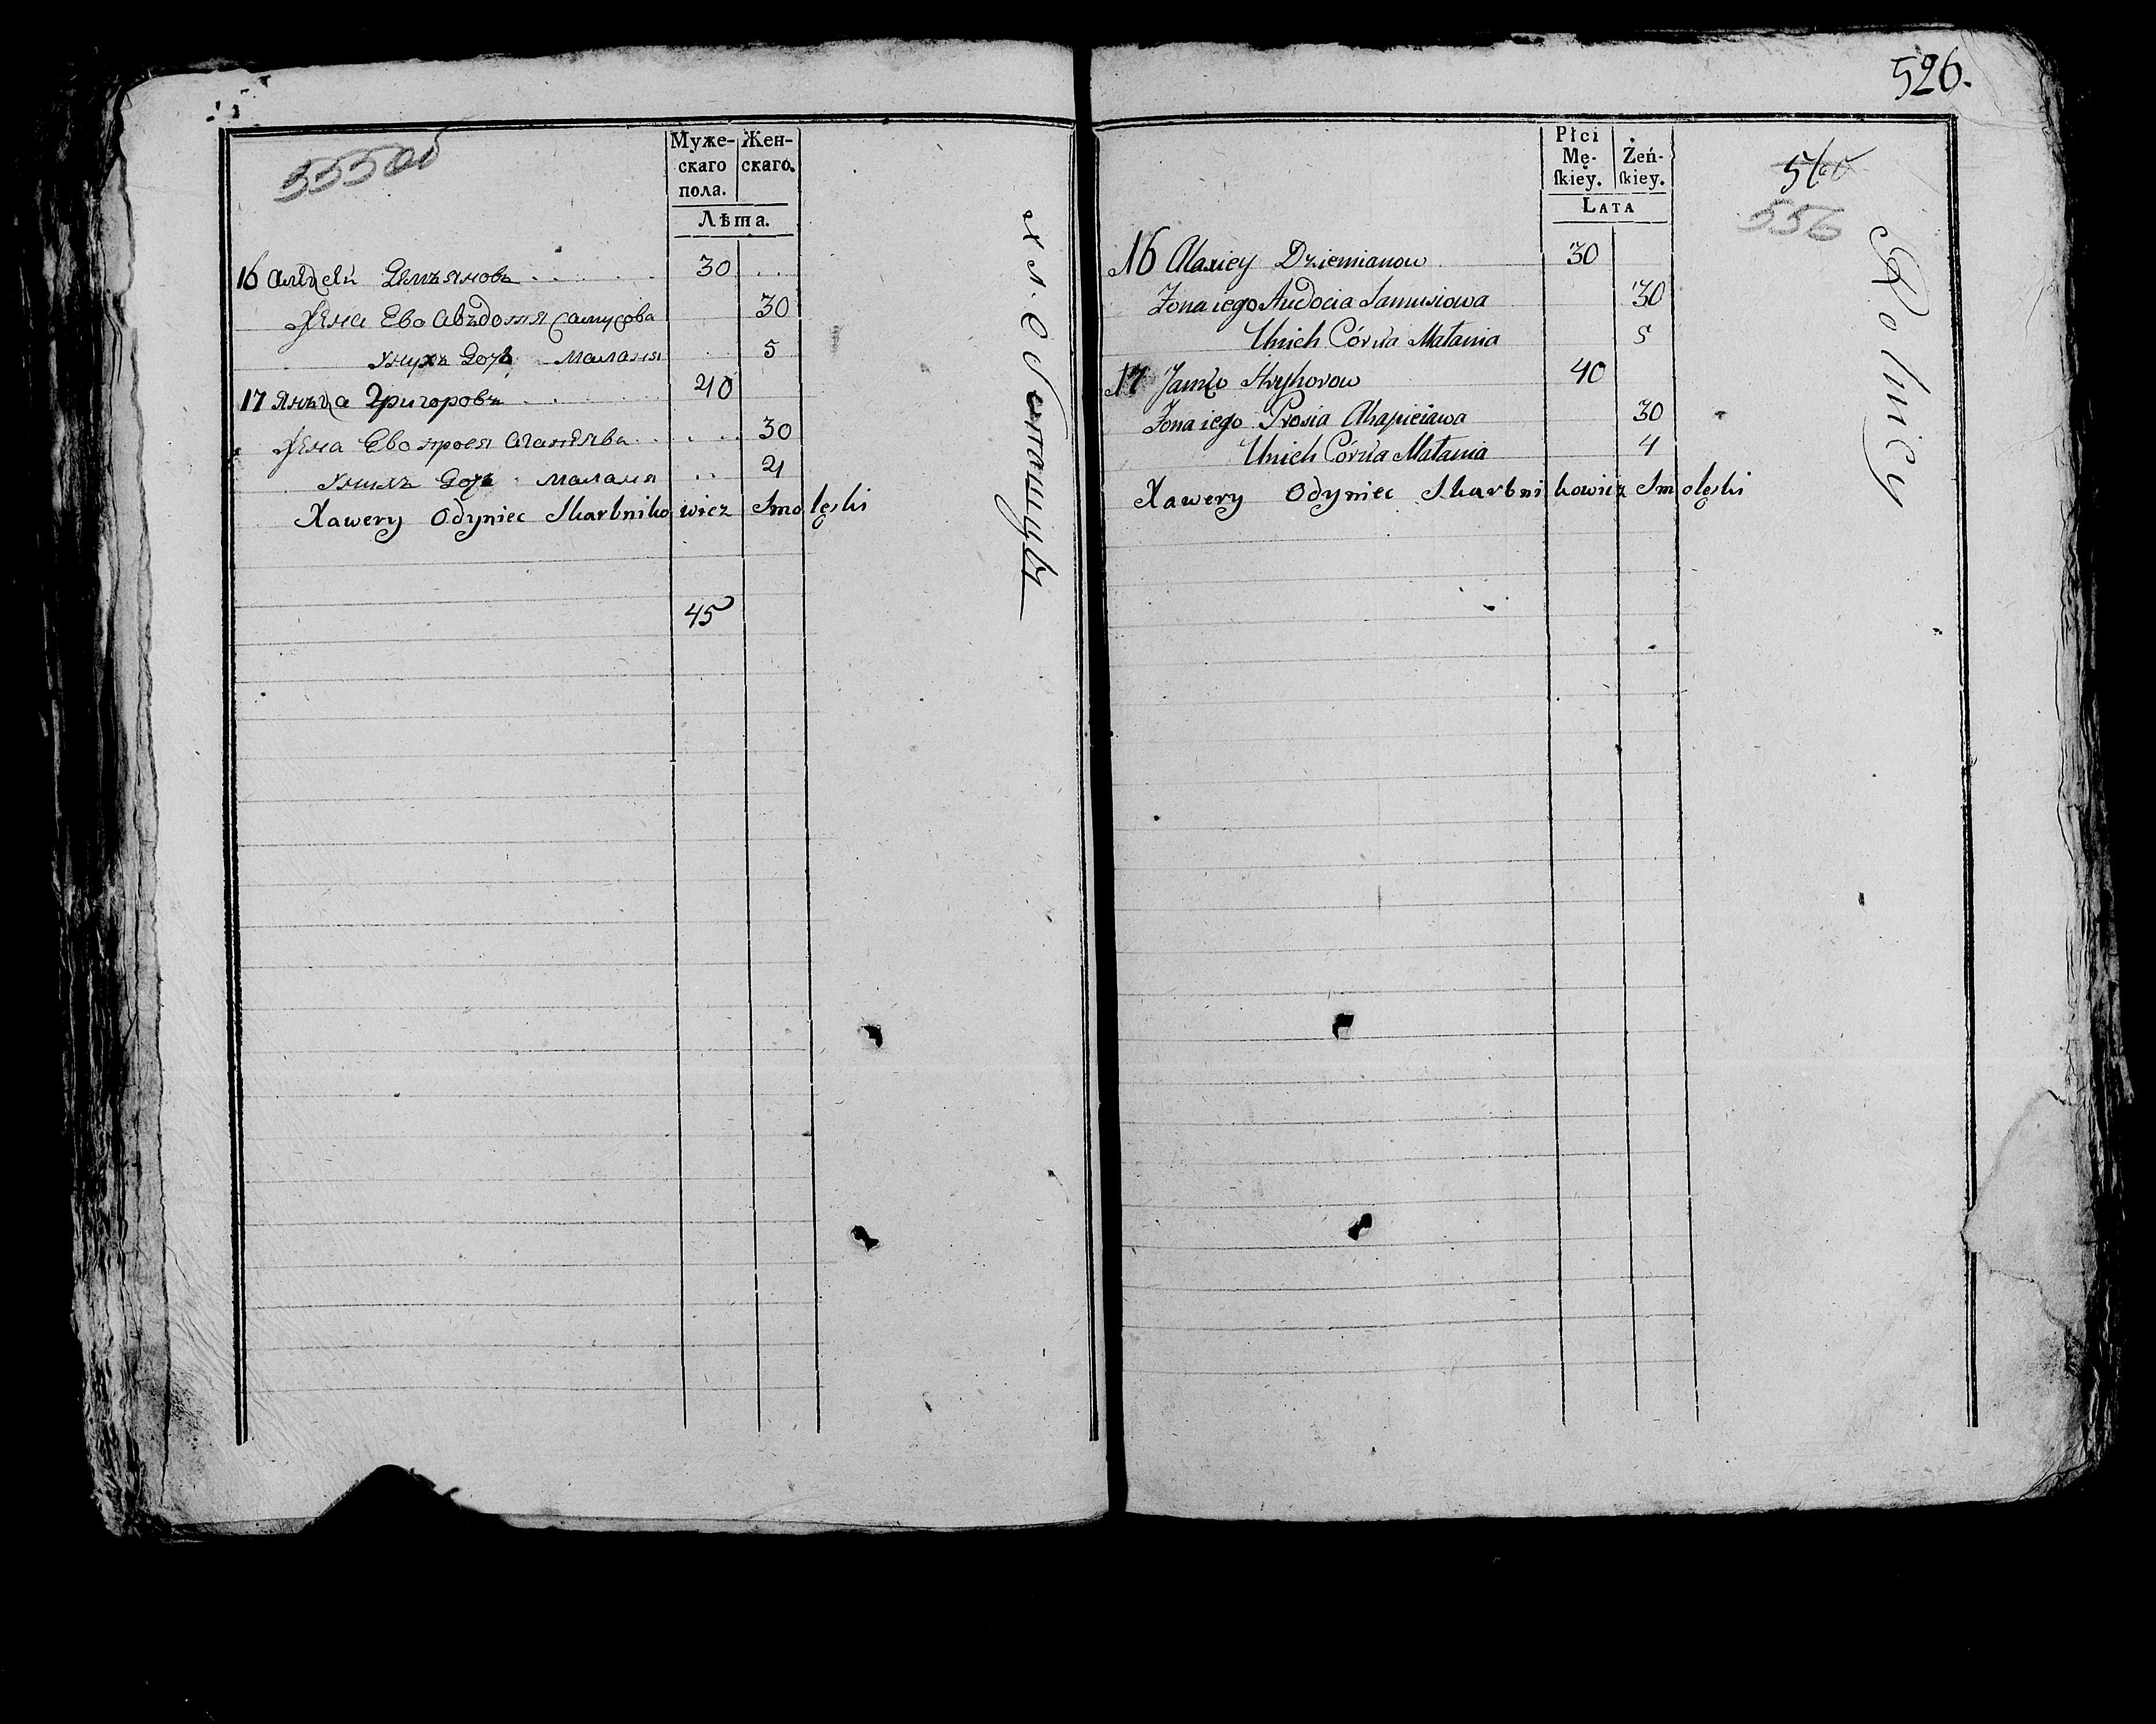 555об
Муже-
скаго
пола.
Жен-
скаго.
Лѣта.
16 Алѣцѣй Демъяновъ 30
Жена Ево Авъдотя Самусова 30
У нихъ Дочь Маланя 5
17 Янъца Григоровъ 40
Жена Ево прося Агапѣява 30
У нихъ Дочь Маланя 4
Xawery Odyniec Skarbnikowicz Smoleski
45
526.
Płci
Mę-
ſkiey.
Żeń-
ſkiey.
Lata
560
556
16 Alaxiey Dziemianow 30
Zona iego Audocia Samusiowa 30
Unich Córka Małania 5
17 Janko Hryhorow 40
Zona iego Prosia Ahapieiawa 30
Unich Córka Małania 4
Xawery Odyniec Skarbnikowicz Smoleski
Rolnicy